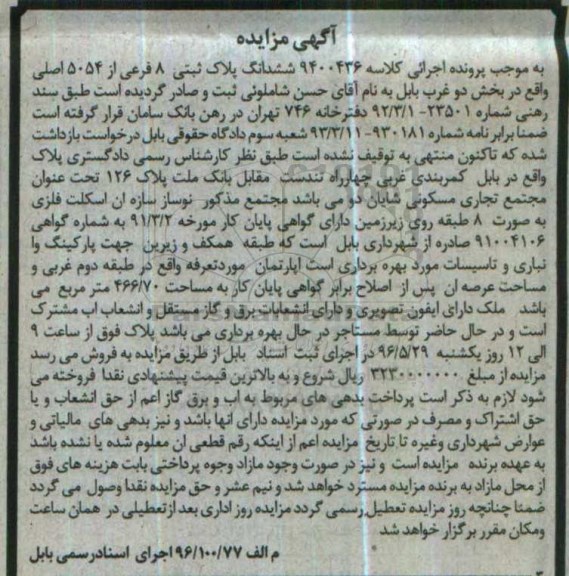 آگهی مزایده
به موجب پرونده اجرائی کلاسه ۹۴۰۰۴۳۶ ششدانگ پلاک ثبتی ۸ فرعی از ۵۰۵۴ اصلی
واقع در بخش دو غرب بابل به نام آقای حسن شاملوئی ثبت و صادر گردیده است طبق سند
رهنی شماره ۲۳۵۰۱- ۹۲/۳/۱ دفترخانه ۷۴۶ تهران در رهن بانک سامان قرار گرفته است
ضمنا برابر نامه شماره ۹۳۰۱۸۱-۹۳/۳/۱۱ شعبه سوم دادگاه حقوقی بابل درخواست بازداشت
شده که تاکنون منتهی به توقیف نشده است طبق نظر کارشناس رسمی دادگستری پلاک
واقع در بابل کمربندی غربی چهارراه تندست مقابل بانک ملت پلاک ۱۲۶ تحت عنوان
مجتمع تجاری مسکونی شایان دو می باشد مجتمع مذکور نوساز سازه ان اسکلت فلزی
به صورت ۸ طبقه روی زیرزمین دارای گواهی پایان کار مورخه ۹۱/۳/۲ به شماره گواهی
۹۱۰۰۴۱۰۶ صادره از شهرداری بابل است که طبقه همکف و زیرین جهت پارکینگ وا
نباری و تاسیسات مورد بهره برداری است اپارتمان موردتعرفه واقع در طبقه دوم غربی و
مساحت عرصه ان پس از اصلاح برابر گواهی پایان کار به مساحت ۴۶۶/۷۰ متر مربع می
باشد ملک دارای ایفون تصویری و دارای انشعابات برق و گاز مستقل و انشعاب اب مشترک
است و در حال حاضر توسط مستاجر در حال بهره برداری می باشد پلاک فوق از ساعت ۹
الی ۱۲ روز یکشنبه ۹۶/۵/۲۹ در اجرای ثبت اسناد بابل از طریق مزایده به فروش می رسد
مزایده از مبلغ ۳۲۳۰۰۰۰۰۰۰ ریال شروع و به بالاترین قیمت پیشنهادی نقدا فروخته می
شود لازم به ذکر است پرداخت بدهی های مربوط به اب و برق گاز اعم از حق انشعاب و یا
حق اشتراک و مصرف در صورتی که مورد مزایده دارای انها باشد و نیز بدهی های مالیاتی و
عوارض شهرداری وغیره تا تاریخ مزایده اعم از اینکه رقم قطعی ان معلوم شده یا نشده باشد
به عهده برنده مزایده است و نیز در صورت وجود مازاد وجوه پرداختی بابت هزینه های فوق
از محل مازاد به برنده مزایده مسترد خواهد شد و نیم عشر و حق مزایده نقدا وصول می گردد
ضمنا چنانچه روز مزایده تعطیل رسمی گردد مزایده روز اداری بعد ازتعطیلی در همان ساعت
ومکان مقرر برگزار خواهد شد
م الف ۹۶/۱۰۰/۷۷ اجرای اسنادرسمی بابل